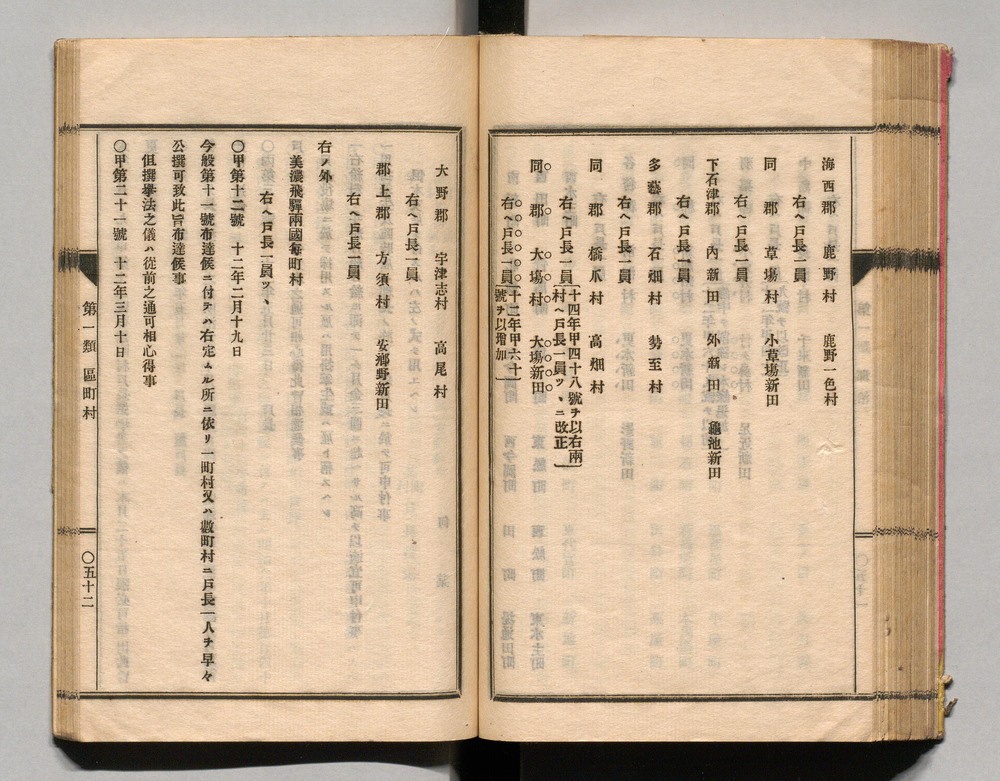 海西郡 鹿野村 鹿野一色村
右ヘ戸長一員
同郡 草塲村 小草塲新田
右ヘ戸長一員
下石津郡 內新田 外新田 龜池新田
右ヘ戸長一員
多藝郡 石畑村 勢至村
右ヘ戸長一員
同郡 橋爪村 高畑村
右ヘ戸長一員〔十四年甲四十八號ヲ以右兩村ヘ戸長一員ツヽニ改正〕
同郡 大塲村 大塲新田
右ヘ戸長一員〔十二年甲六十二號ヲ以增加〕
大野郡 宇津志村 高尾村
右ヘ戸長一員
郡上郡 方須村 安鄕野新田
右ヘ戸長一員
右ノ外
美濃飛驒兩國每町村
右ヘ戸長一員ツヽ
〇甲第十二號 十二年二月十九日
今般第十一號布達候ニ付テハ右定ムル所ニ依リ一町村又ハ數町村ニ戸長一人ヲ早々
公撰可致此旨布達候事
但撰擧法之儀ハ從前之通可相心得事
〇甲第二十一號 十二年三月十日
第一類 區町村
〇五十二